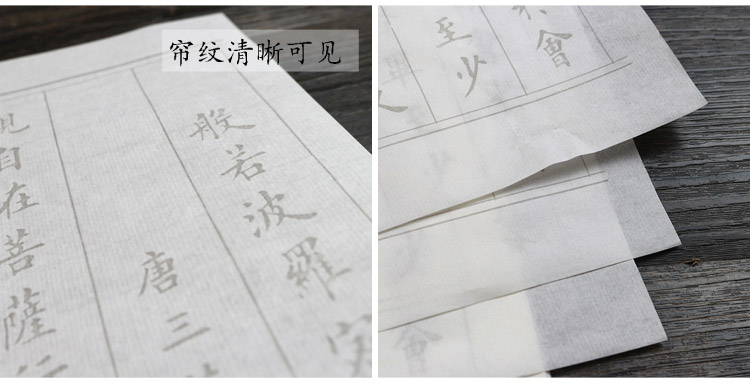 帘纹清晰可见
般若波羅
唐三
自在菩薩
會
至少
會